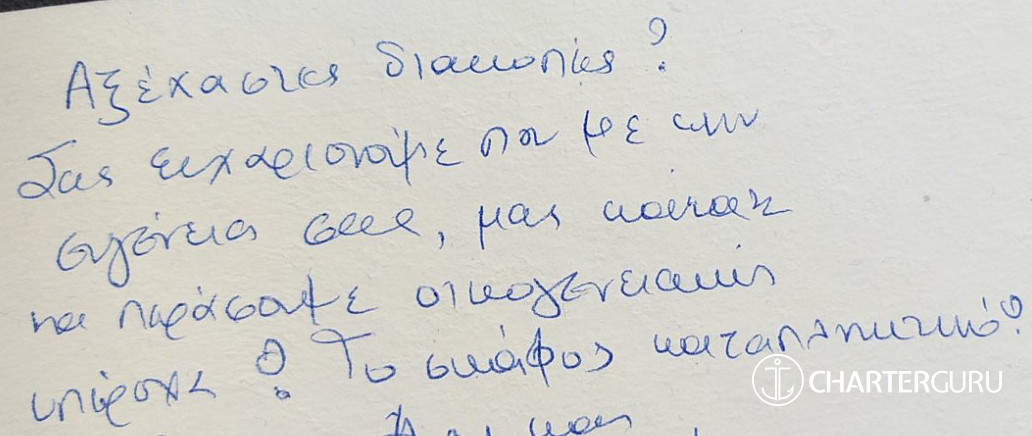 Αξέχαστες διακοπές!
Σας ευχαριστούμε που με την
ευγένεια σας, μας κάνατε
να περάσουμε οικογενειακώς
υπέροχα! Το σκάφος καταπληκτικό!
CHARTERGURU